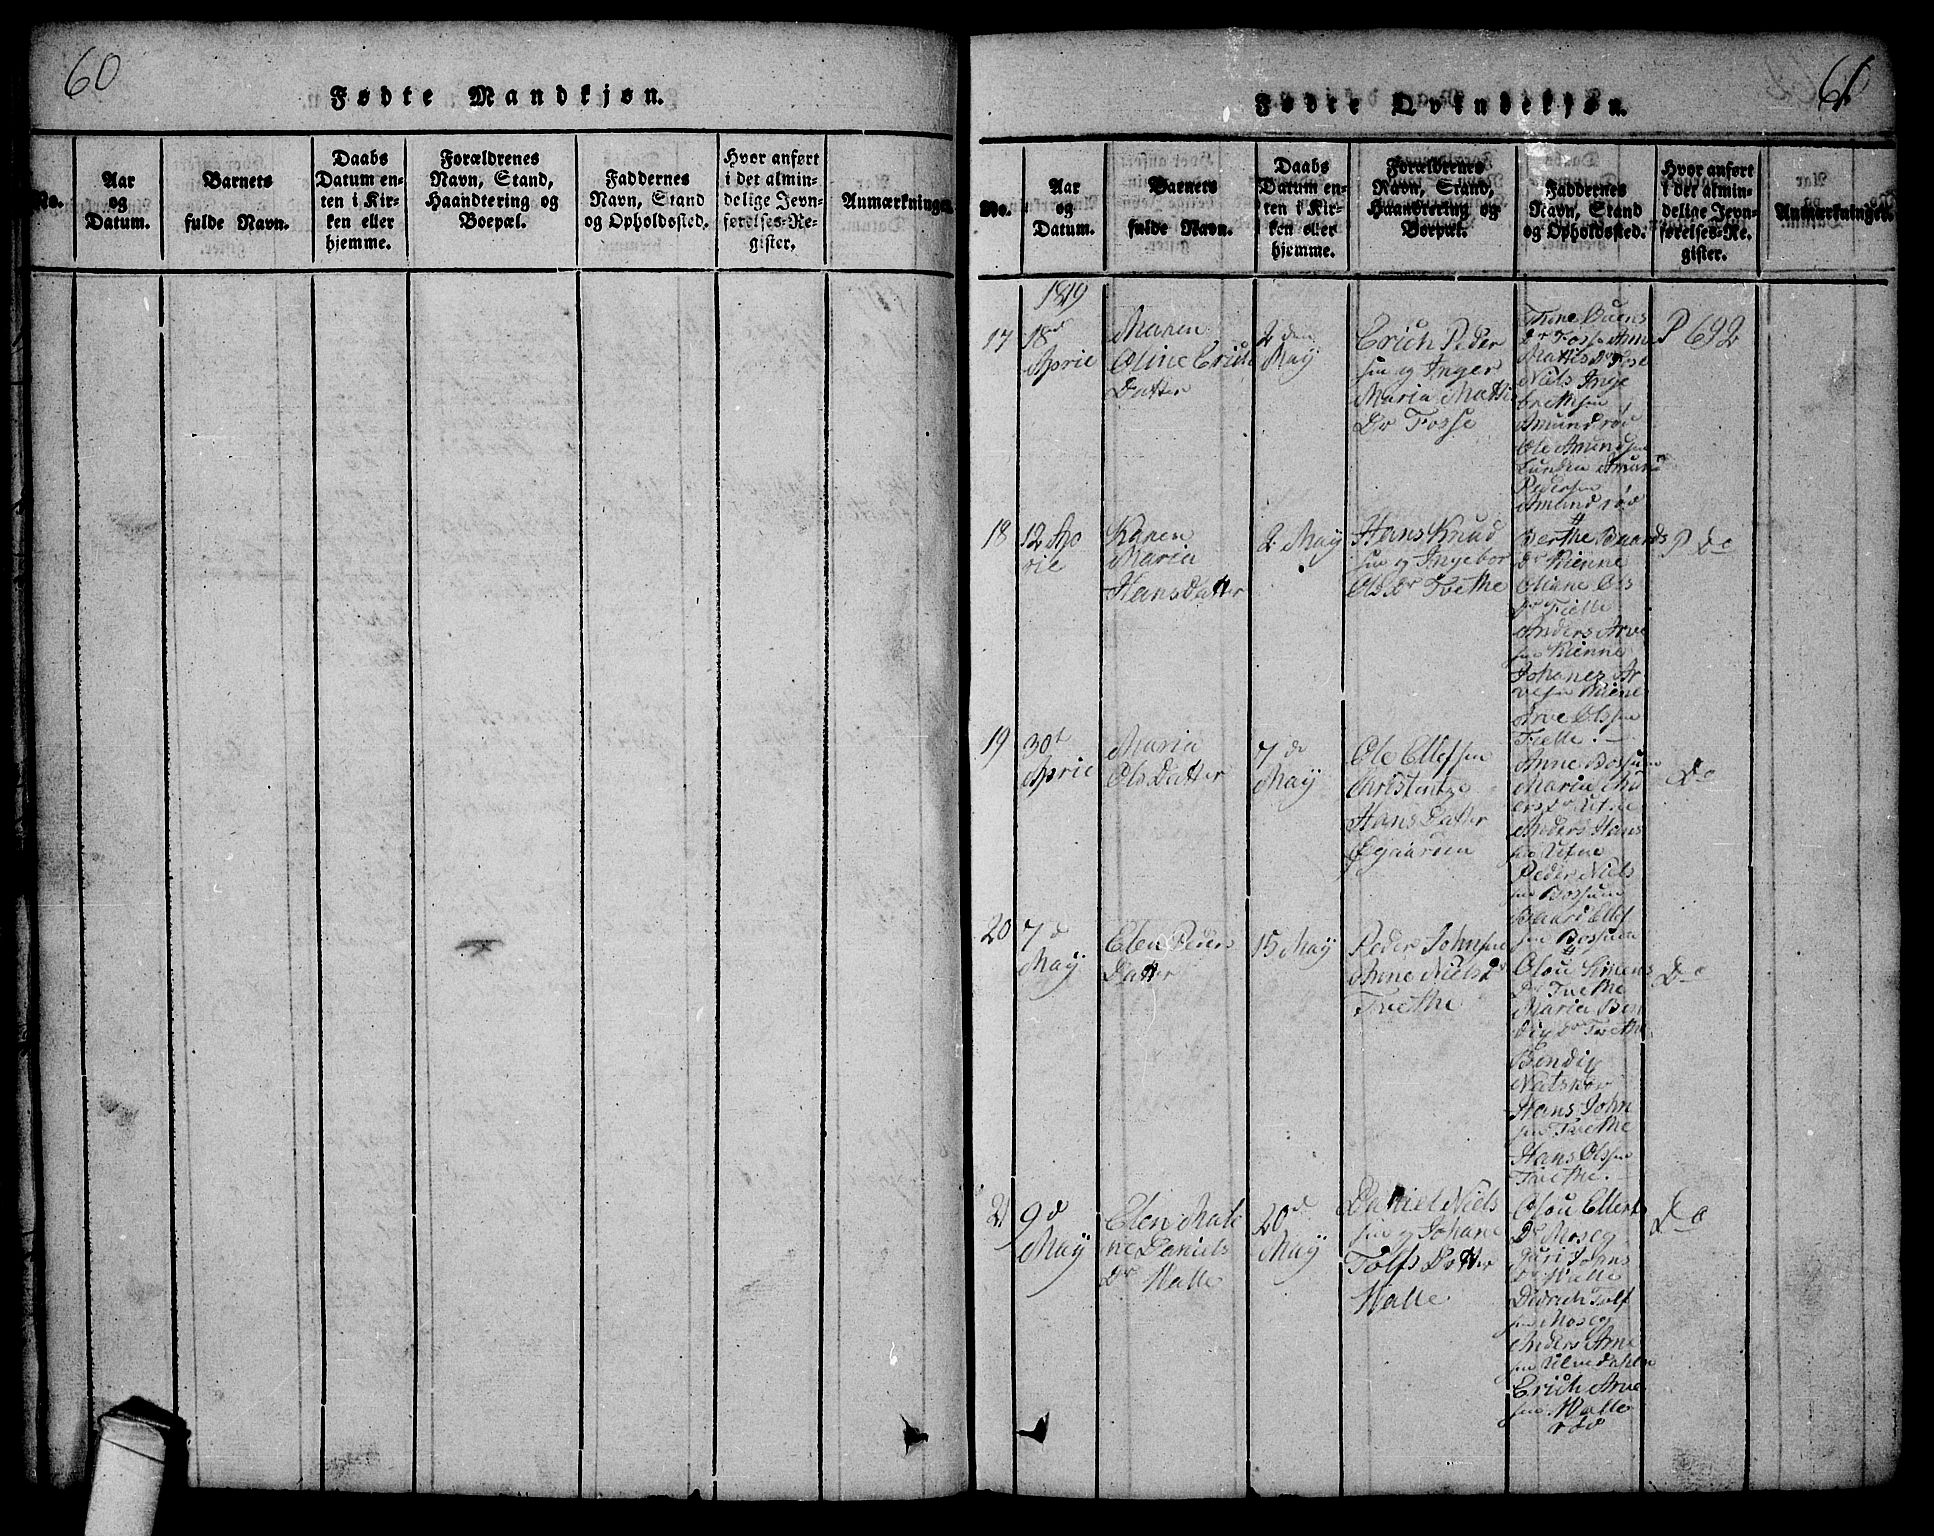 60
Fødte Mandkjøn.
No.
Aar
og
Datum.
Barnets
fulde Navn.
Daabs
Datum en-
ten i Kir-
ken eller
hjemme.
Forældrenes
Navn, Stand,
Haandtering og
Boepæl.
Faddernes
Navn, Stand
og Opholdssted.
Hvor anført
i det almin-
delige Jevn-
førelses-Re-
gister.
Anmærkninger.
61
Fødte Qvindekjøn.
No.
Aar
og
Datum.
Barnets
fulde Navn.
Daabs
Datum en-
ten i Kir-
ken eller
hjemme.
Forældrenes
Navn, Stand,
Haandtering og
Boepæl.
Faddernes
Navn, Stand
og Opholdssted.
Hvor anført
i det almin-
delige Jevn-
førelses-Re-
gister.
Anmærkninger.
1819
17
18d
Aprie
Maren
Oline Erich
Datter
2 den
May
Erich Peder
sen og Inger
Maria Matti
Dr Fosse
Dr Fosse Anne
Mattis Dr Fosse
Niels Inge
bretksen
Amundrød
Ole Amundsen
Lunden Amund
Pedersen
Amundrød
P 692
18
12 Ap
rie
Karen
Maria
Hansdatter
2 May
Hans Knud
sen og Ingebor
Olsdr Tvethe
Berthe Baards
Dr Kienne
Oliane Ols
Dr Tvette
Anders Arve
sen Kienne
Johanes Ar
vesen Kiene
Arve Olssen
Tvette.
P Do
19
30t
Aprie
Maria
Ols Datter
7 de
May
Ole Ellefsen
Christentze
Hans Datter
Øgaarden
Anne Bossum
Maria An
ders Dr Ufne
Anders Hans
sen Ufne
Peder Niels
sen Bossum
Baard Ellef
sen Bossum
Do
20
7 d
May
Elen Peders
Datter
15 May
Peder Johnsen
Anne Nielsdr
Tvethe
Olou Simens
Dr Tvethe
Maria Ben
dig Dr Tvethe
Bendig
Hans John
sen Tvethe
Hans Olssen
Tvethe.
Do
21
9 d
May
Elen Mali
ne Daniels
Dr Walle
20d
May
Daniel Niels
sen og Johane
Tolfs Datter
Walle
Olou Ellerts
Dr Moseg
Guri Johns
Dr Walle
Didrich Tolf
sen Moseg
Anders Arve
sen Ulvedahlen
Erich Arve
sen Walle
rød
Do